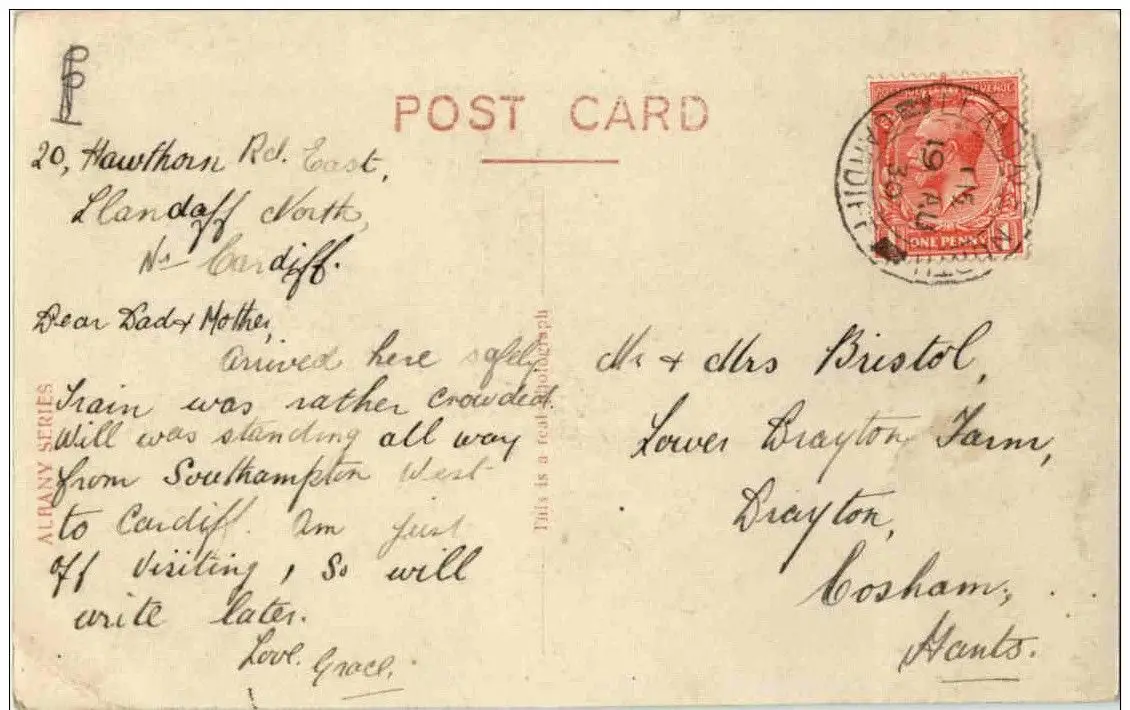 POST CARD
20, Hawthorn Rd. East,
Llandaff North,
Nr Cardiff.
Dear Dad & Mother,
Arrived here safely
Train was rather crowded.
Will was standing all way
from Southampton West
to Cardiff. Am just
off visiting, so will
write later.
Love. Grace.
ALBANY SERIES
This is a real photograph
Mr & Mrs Bristol,
Lower Drayton Farm,
Drayton,
Cosham,
Hants.
ONE PENNY
19 AU
30
CARDIFF